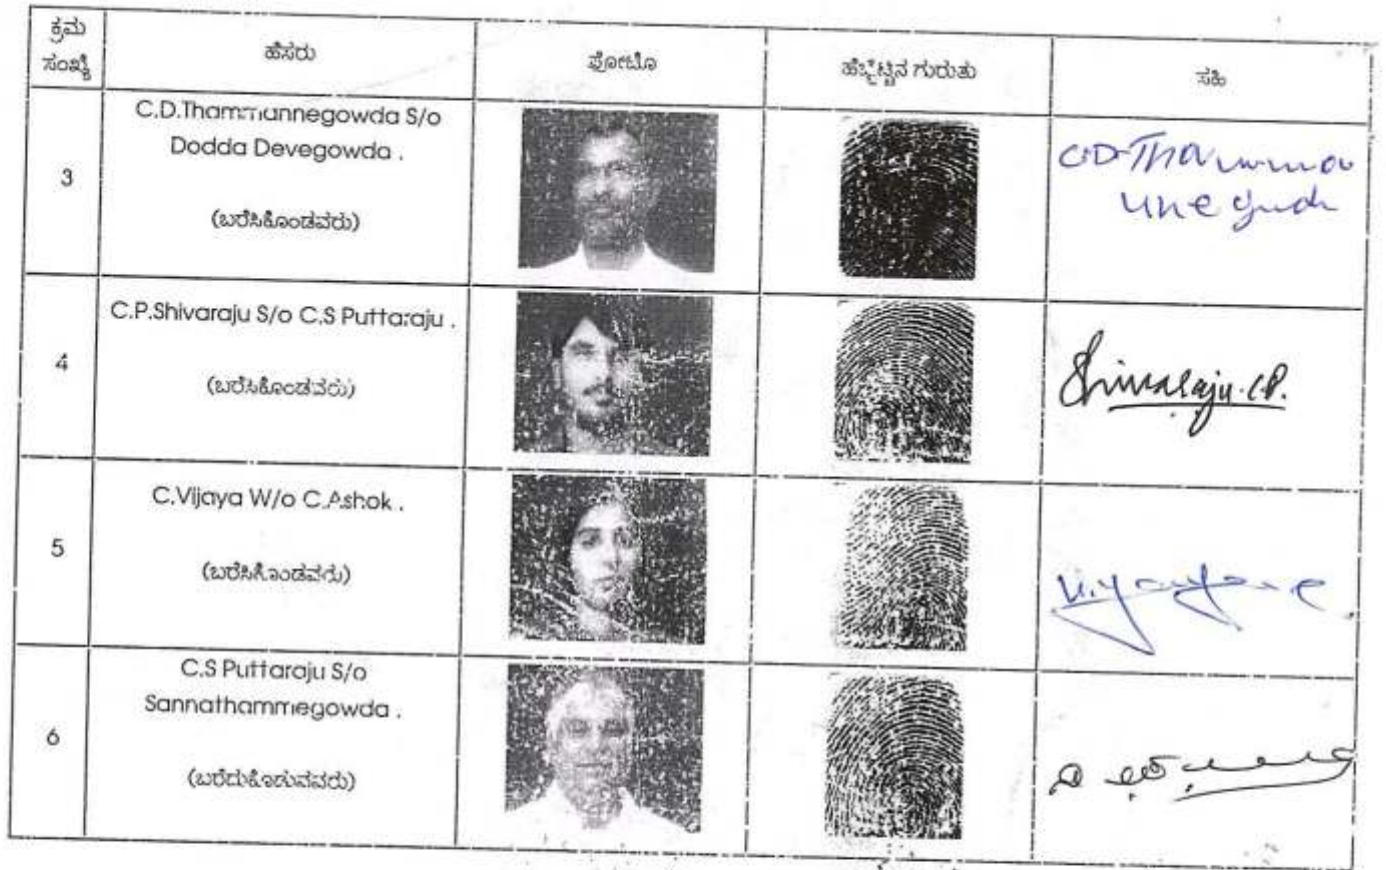 ಕ್ರಮ
ಸಂಖ್ಯೆ
ಹೆಸರು
ಫೋಟೊ
ಹೆಬ್ಬೆಟ್ಟಿನ ಗುರುತು
ಸಹಿ
3
C.D.Thammannegowda S/o
Dodda Devegowda .
(ಬರೆಸಿಕೊಂಡವರು)
4
C.P.Shivaraju S/o C.S Puttaraju .
(ಬರೆಸಿಕೊಂಡವರು)
Shivaraju.C.P.
5
C.Vijaya W/o C.Ashok .
(ಬರೆಸಿಕೊಂಡವರು)
6
C.S Puttaraju S/o
Sannathammegowda .
(ಬರೆದುಕೊಡುವವರು)